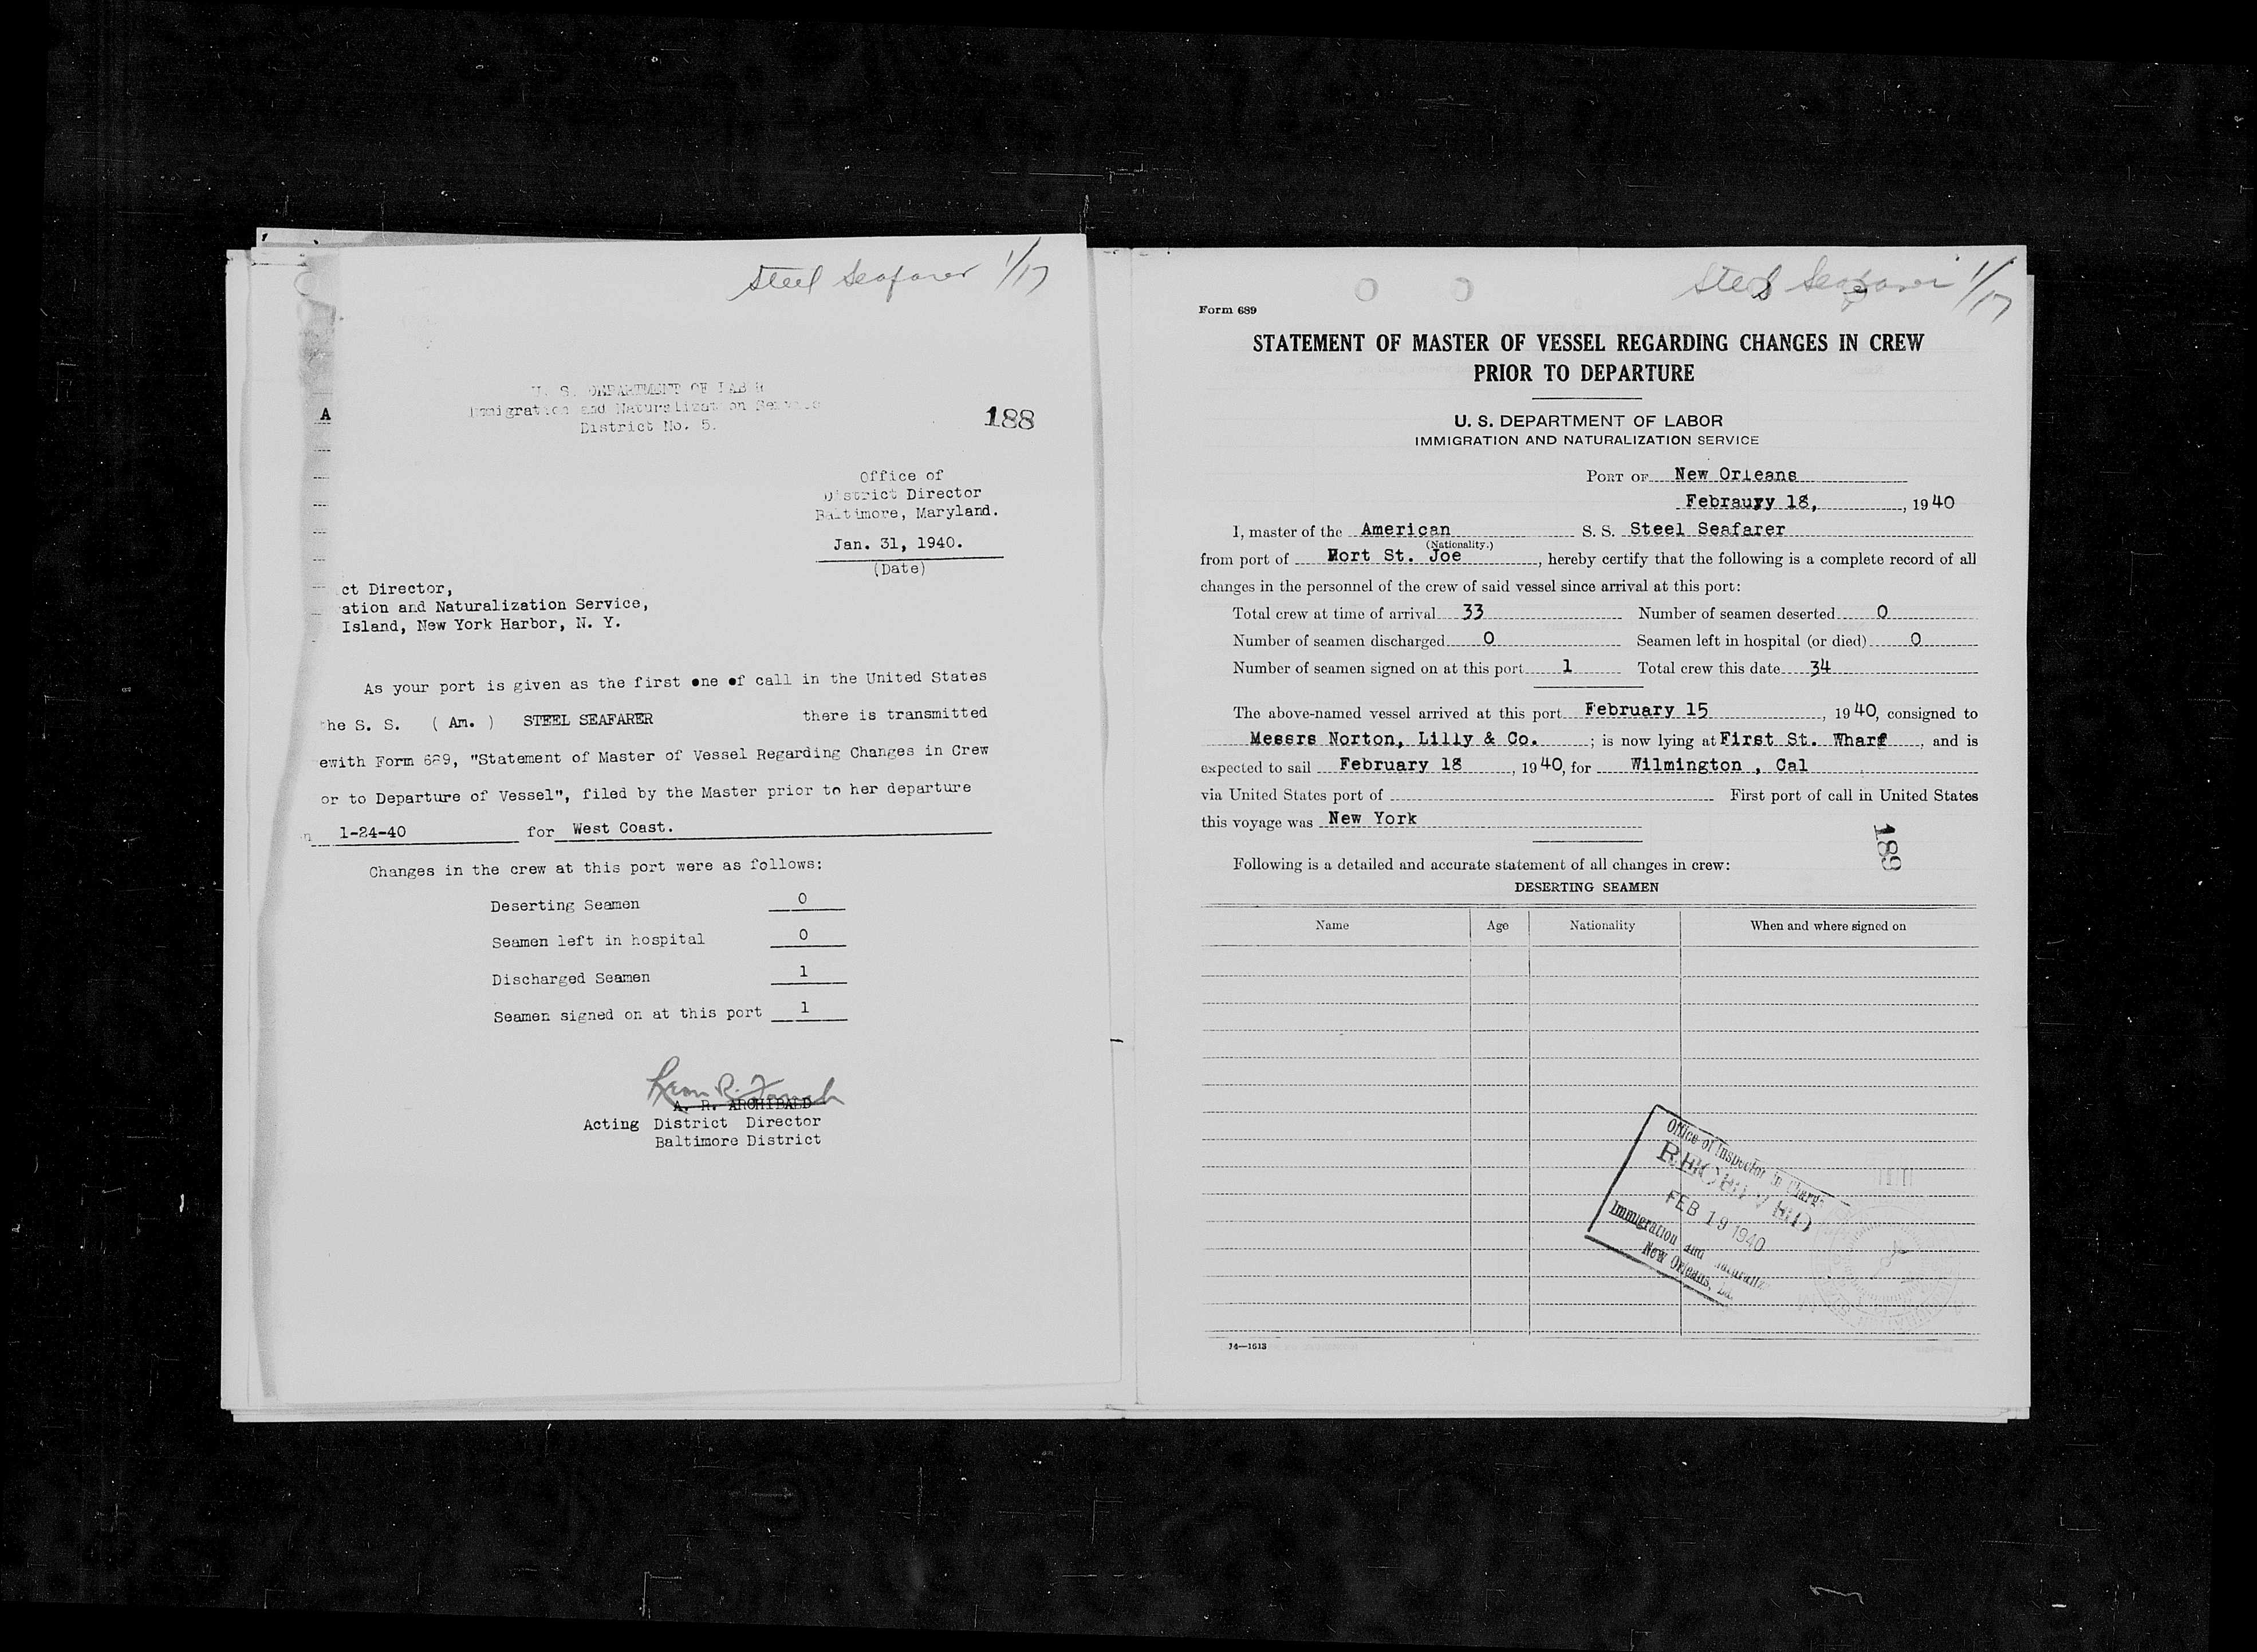 Steel Seafarer 1/17
U. S. DEPARTMENT OF LABOR
Immigration and Naturalization Service
District No. 5.
A
188
Office of
District Director
Baltimore, Maryland.
Jan. 31, 1940.
(Date)
ct Director,
ation and Naturalization Service,
Island, New York Harbor, N. Y.
As your port is given as the first one of call in the United States
he S. S. ( Am. ) STEEL SEAFARER there is transmitted
ewith Form 689, "Statement of Master of Vessel Regarding Changes in Crew
or to Departure of Vessel", filed by the Master prior to her departure
n 1-24-40 for West Coast.
Changes in the crew at this port were as follows:
Deserting Seamen 0
Seamen left in hospital 0
Discharged Seamen 1
Seamen signed on at this port 1
A. R. ARCHIBALD
Acting District Director
Baltimore District
Steel Seafarer 1/17
Form 689
STATEMENT OF MASTER OF VESSEL REGARDING CHANGES IN CREW
PRIOR TO DEPARTURE
U. S. DEPARTMENT OF LABOR
IMMIGRATION AND NATURALIZATION SERVICE
PORT OF New Orleans
Febrauyy 18, , 1940
I, master of the American S. S. Steel Seafarer
(Nationality.)
from port of Mort St. Joe , hereby certify that the following is a complete record of all
changes in the personnel of the crew of said vessel since arrival at this port:
Total crew at time of arrival 33 Number of seamen deserted 0
Number of seamen discharged 0 Seamen left in hospital (or died) 0
Number of seamen signed on at this port 1 Total crew this date 34
The above-named vessel arrived at this port February 15 , 1940, consigned to
Messrs Norton, Lilly & Co. ; is now lying at First St. Wharf , and is
expected to sail February 18 , 1940, for Wilmington , Cal
via United States port of First port of call in United States
this voyage was New York
189
Following is a detailed and accurate statement of all changes in crew:
DESERTING SEAMEN
Name Age Nationality When and where signed on
Office of Inspector in Charge
RECEIVED
FEB 19 1940
Immigration and Naturaliz
New Orleans, La.
14—1613